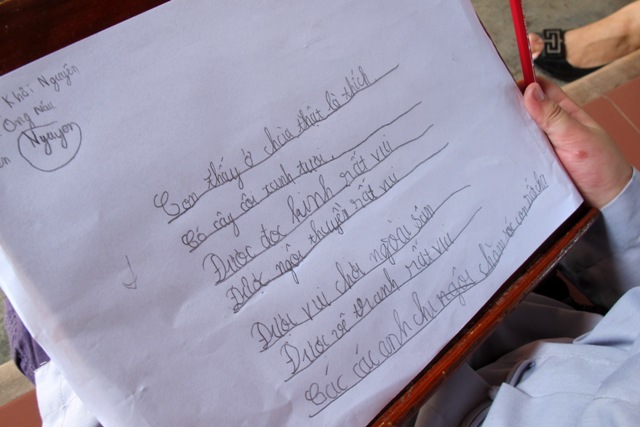 Khải Nguyên
Ong nâu
Nguyên
Con thấy ở chùa thật là thích
Có cây cối xanh tươi,
Được đọc kinh rất vui
Được ngồi thuyền rất vui
Được vui chơi ngoài sân
Được vẽ tranh rất vui
Các các anh chị ngậu chăm sóc con